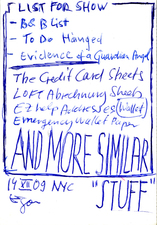 LIST FOR SHOW
- B&B List
- To Do Hanged
- Evidence of a Guardian Angel
The Credit Card Sheets
LOFT Abrechnung Sheets
EZ help Addresses (Wallet)
Emergency Wallet Paper
AND MORE SIMILAR
"STUFF"
14 XII 09 NYC